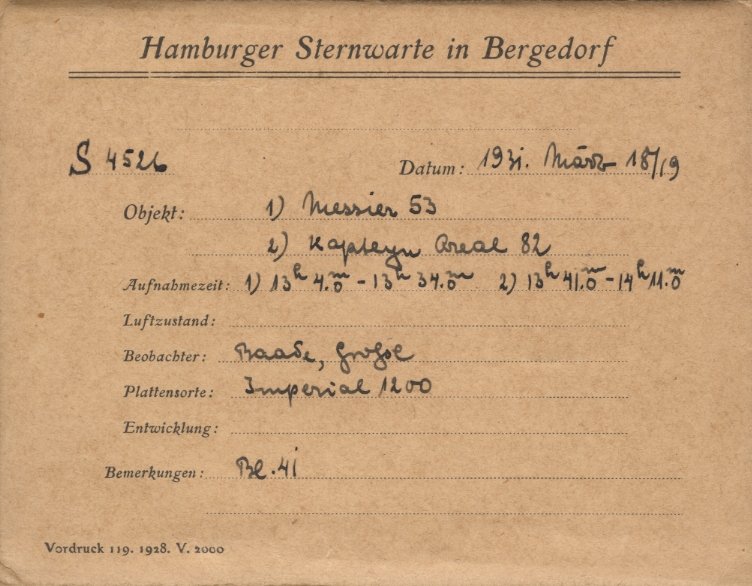 Hamburger Sternwarte in Bergedorf
S 4526 Datum: 1931. März 18/19
Objekt: 1) Messier 53
2) Kapteyn Areal 82
Aufnahmezeit: 1) 13h 4.m0 - 13h 34.m0 2) 13h 41.m0 - 14h 11.m0
Luftzustand:
Beobachter: Baade, Große
Plattensorte: Imperial 1200
Entwicklung:
Bemerkungen: Bl. 41
Vordruck 119. 1928. V. 2000